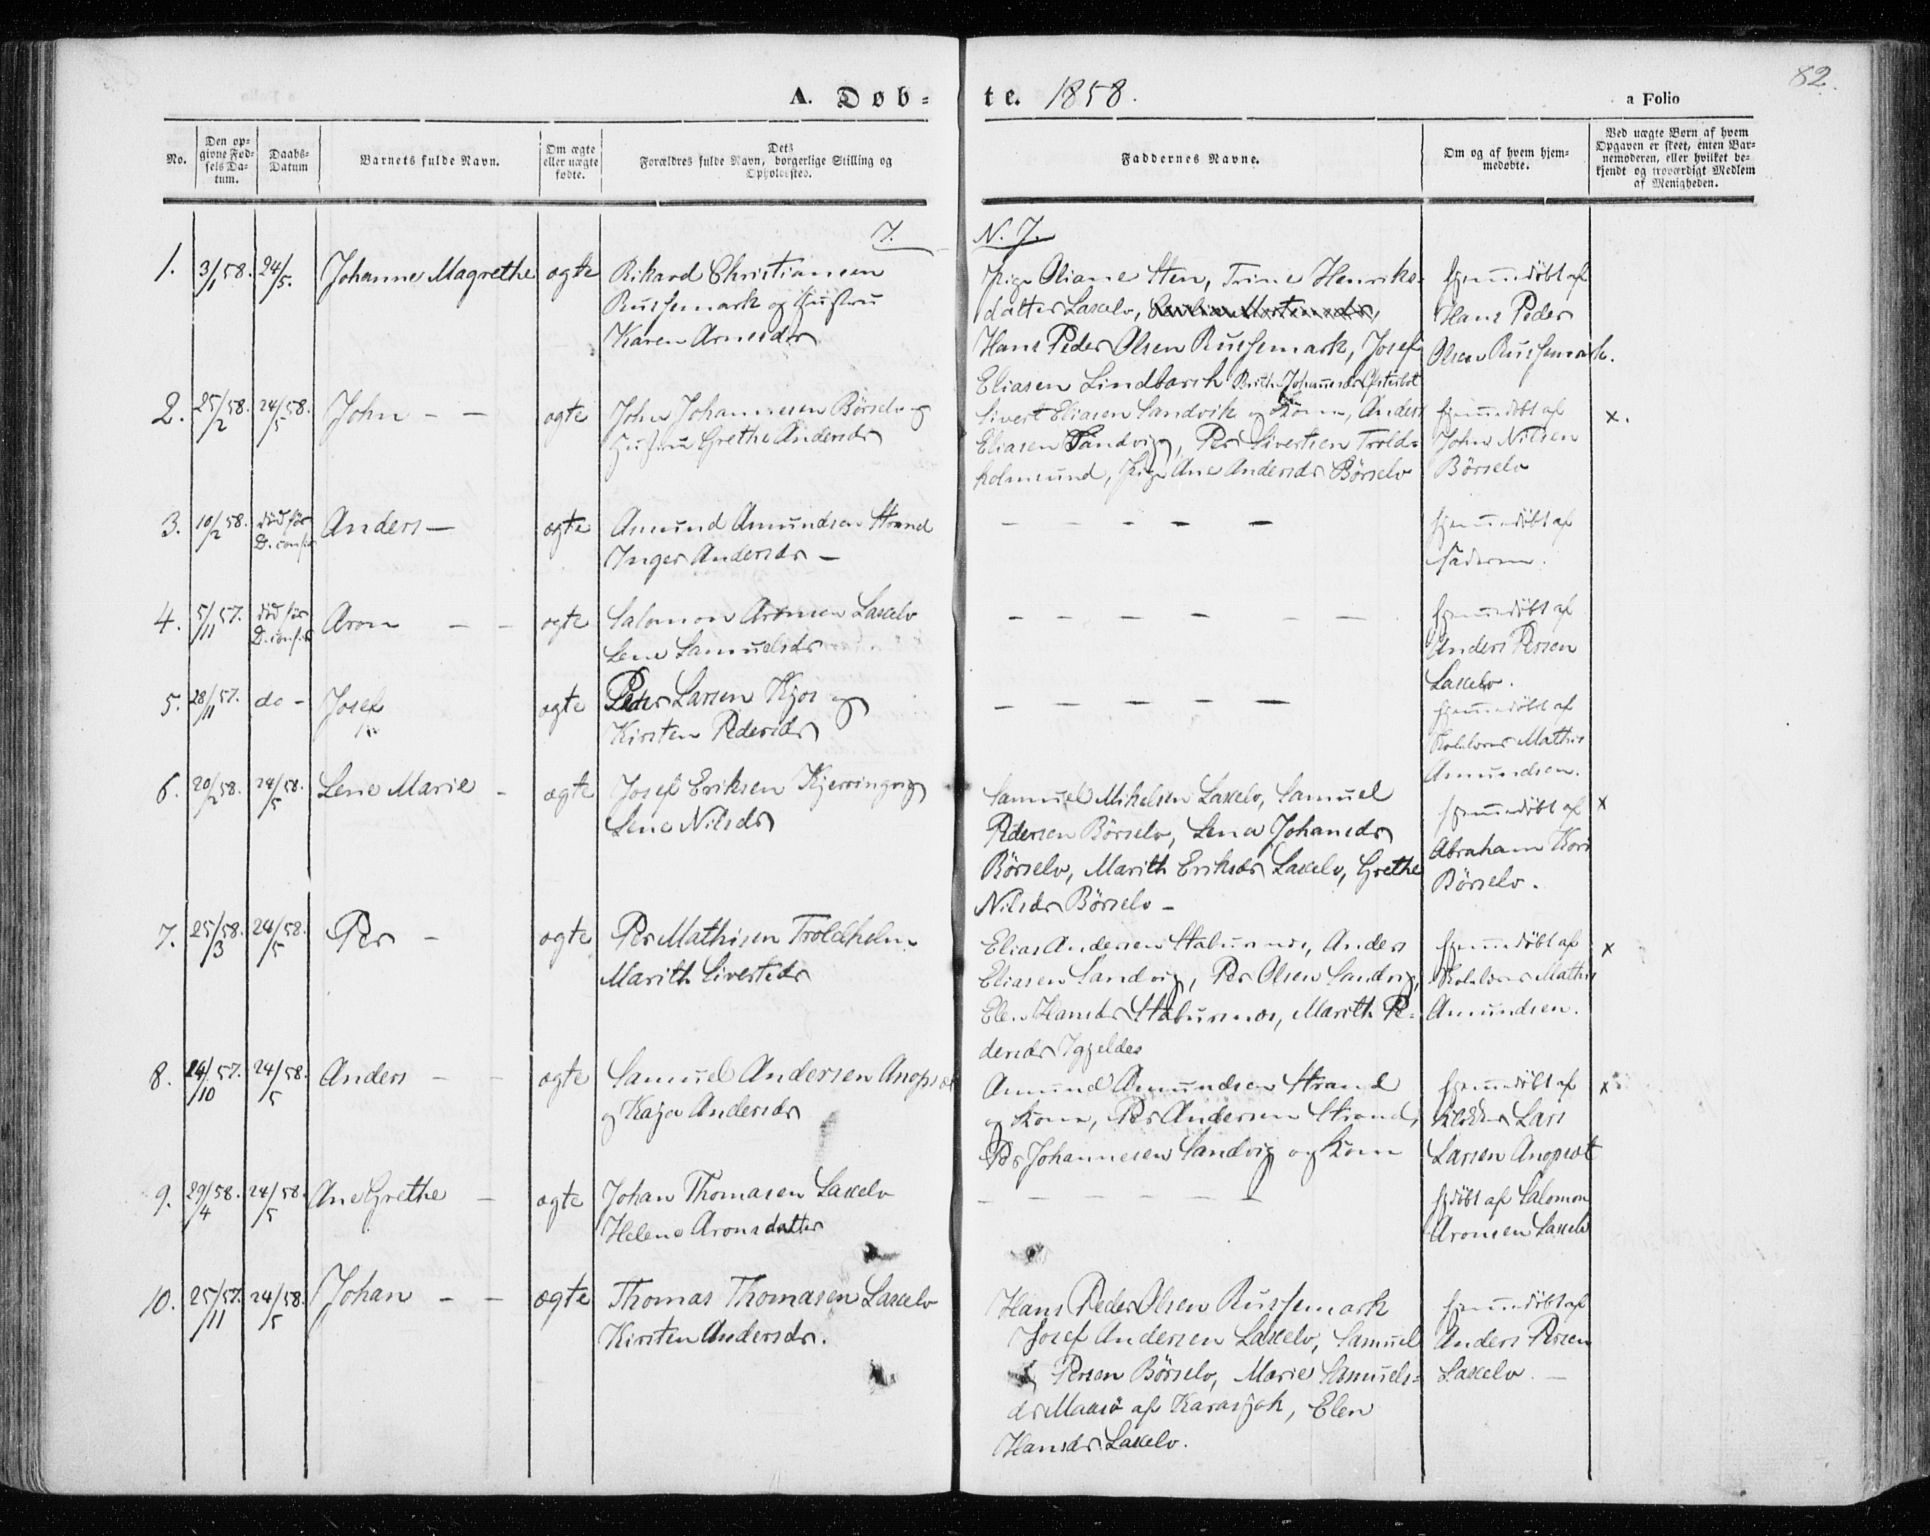 82.
A. Døb-
te. 1858.
a Folio
No.
Den op-
givne Fød-
sels Da-
tum.
Daabs-
Datum
Barnets fulde Navn.
Om ægte
eller uægte
fødte.
Dets
Forældres fulde Navn, borgerlige Stilling og
Opholdsted.
Faddernes Navne.
Om og af hvem hjem-
medøbte.
Ved uægte Børn af hvem
Opgaven er skeet, enten Bar-
nemoderen, eller hvilket be-
kjendt og troværdigt Medlem
af Menigheden.
7.
N. 7.
1. 3/1 58. 24/5. Johanne Magrethe ægte Rikard Christiansen
Russemark og Hustru
Karen Arnesdr
Pige Oliane Sten, Trine Henriks-
datter Laxelv,
Hans Peder Olsen Russemark, Josef
Eliasen Lindbarsh Brith Johannesdr
hjemmedøbt af
Hans Peder
Olsen Russemark.
2. 25/2 58. 24/5 58. John - - ægte John Johannesen Børselv og
Hustru Grethe Andersdr
Sivert Eliasen Sandvik og Kone, Anders
Eliasen Sandvig, Per Sivertsen Trold-
holmsund, Pige Ane Andersdr Børselv
hjemmedøbt af
John Nilsen
Børselv
x.
3. 10/2 58. død før
D. conf. Anders - ægte Amund Amundsen Strand
Inger Andersdr -
- - - - -
hjemmedøbt af
Faderen.
4. 5/11 57. død før
D. conf. Aron - - ægte Salomon Aronsen Laxelv
Lene Samuelsdr
- - - - - -
hjemmedøbt af
Anders Persen
Laxelv.
5. 28/11 57. do - Josef ægte Peder Larsen Kjos og
Kirsten Pedersdr
- - - - -
hjemmedøbt af
Mathis
Amundsen.
6. 20/2 58. 24/5 58. Lene Marie - ægte Josef Eriksen Kjerringvig
Lene Nilsdr
Samuel Mikelsen Laxelv, Samuel
Pedersen Børselv, Lena Johansdr
Børselv, Marith Eriksdr Laxelv, Grethe
Nilsdr Børselv -
hjemmedøbt af
Abraham
Børselv.
x
7. 25/3 58. 24/5 58. Per - ægte Per Mathisen Troldholm
Marith Sivertsdr
Elias Andersen Stabursnes, Anders
Eliasen Sandvig, Per Olsen Sandvig,
Elen Hansdr Staburnæs, Marith Pe-
dersdr Igjeldes
hjemmedøbt af
Mathis
Amundsen.
x
8. 24/10 57. 24/5 58. Anders - - ægte Samuel Andersen Anopset
og Kaja Andersdr
Amund Amundsen Strand
og Kone, Per Andersen Strand,
Per Johannesen Sandvig og Kone
hjemmedøbt af
Lars
Larsen Anopset
x
9. 29/4 58. 24/5 58. Ane Grethe - ægte Johan Thomasen Laxelv
Helene Aronsdatter
- - - - - -
hjdøbt af Salomon
Aronsen Laxelv
10. 25/11 57. 24/5 58. Johan - - ægte Thomas Thomasen Laxelv
Kirsten Andersdr.
Hans Peder Olsen Russemark
Josef Andersen Laxelv, Samuel
Persen Børselv, Marie Samuels-
dr Maasø af Karasjok, Elen
Hansdr Laxelv.
hjemmedøbt af
Anders Persen
Laxelv. -